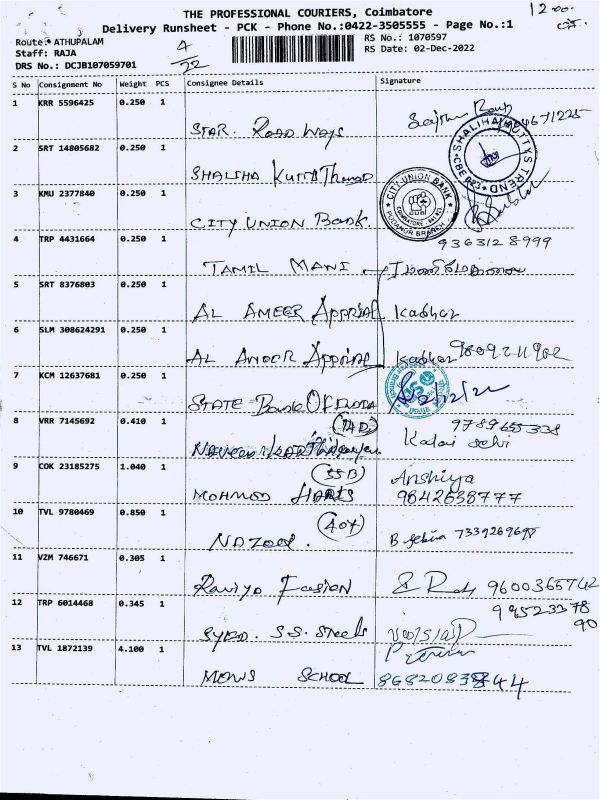 THE PROFESSIONAL COURIERS, Coimbatore
Delivery Runsheet - PCK - Phone No.:0422-3505555 - Page No.:1
1200
Route: ATHUPALAM
Staff: RAJA
DRS No.: DCJB107059701
4/22
RS No.: 1070597
RS Date: 02-Dec-2022
S No Consignment No Weight PCS Consignee Details Signature
1 KRR 5596425 0.250 1
STAR. Road Ways
2 SRT 14805682 0.250 1
SHALIHA
SHALIHA KUTTYS TREND
CBE
3 KMU 2377840 0.250 1
CITY UNION Bank.
CITY UNION BANK
PODANUR BRANCH
4 TRP 4431664 0.250 1
9363128999
TAMIL MANI
5 SRT 8376803 0.250 1
AL AMEER Apprial Kadhar
6 SLM 308624291 0.250 1
AL AMEER Apprial Kadhar
7 KCM 12637681 0.250 1
STATE Bank OF
8 VRR 7145692 0.410 1
(14D) 9789655338
Naveen Kalai selvi
9 COK 23185275 1.040 1
(55B) Anshiya
MOHMOD HARIS 9842638777
10 TVL 9780469 0.850 1
(404)
NAZOOR. 7339269698
11 VZM 746671 0.305 1
Raniya Fasion 9600365742
12 TRP 6014468 0.345 1
SYED. S.S. Steels
13 TVL 1872139 4.100 1
MEWS SCHOOL